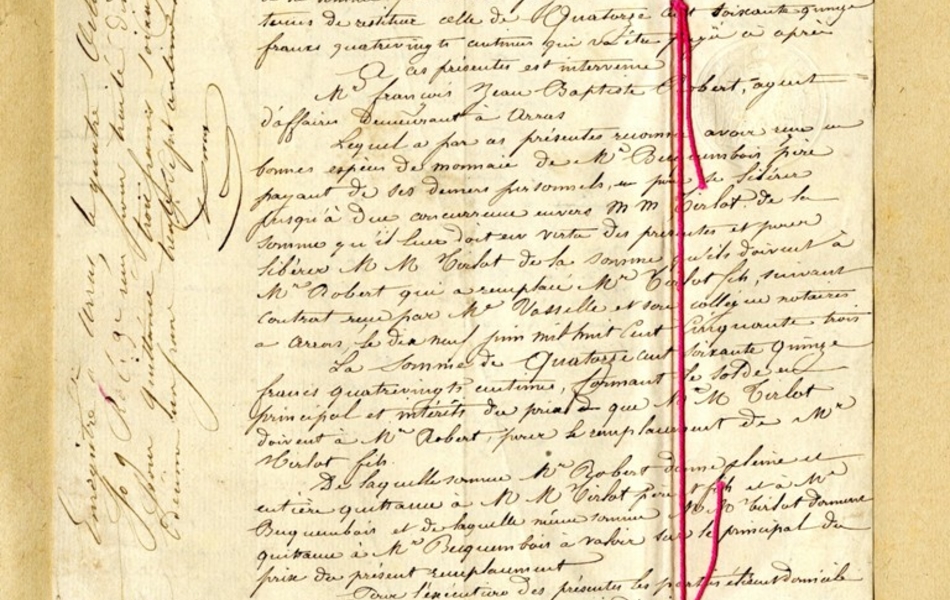 tenus de restituer celle de Quatorze cent soixante quinze
francs quatrevingts centimes qui va être payé ci après
à ces présentes est intervenu
Mr françois Jean Baptiste Robert, agent
d'affaires demeurant à Arras
Lequel a par ces présentes reconnu avoir reçu en
bonnes espèces de monnaie de Mr Becquembois père
payant de ses deniers personnels, en pour se libérer
jusqu'à due concurrence envers M M Tirlot de la
somme qu'il leur doit en vertu des présentes et pour
libérer M M Tirlot de la somme qu'ils doivent à
Mr Robert qui a remplacé Mr Tirlot fils, suivant
contrat reçu par Me Vasselle et son collègue notaires
à Arras, le dix neuf juin mil huit cent cinquante trois
La Somme de Quatorze cent soixante quinze
francs quatrevingts centimes, formant le solde en
principal et intérêts du prix que M M Tirlot
doivent à Mr Robert, pour le remplacement de Mr
Tirlot fils.
De laquelle somme Mr Robert donne pleine et
entière quittance à M M Tirlot père et fils et à Mr
Becquembois et de laquelle même somme M M Tirlot donnent
quittance à Mr Becquembois à valoir sur le principal du
prix du présent remplacement
Pour l'exécution des présentes les parties élisent domicile
Enregistré à Arras, le quatre
reçu pour
pour quittance trois francs soixante
décime un franc trente sept centimes